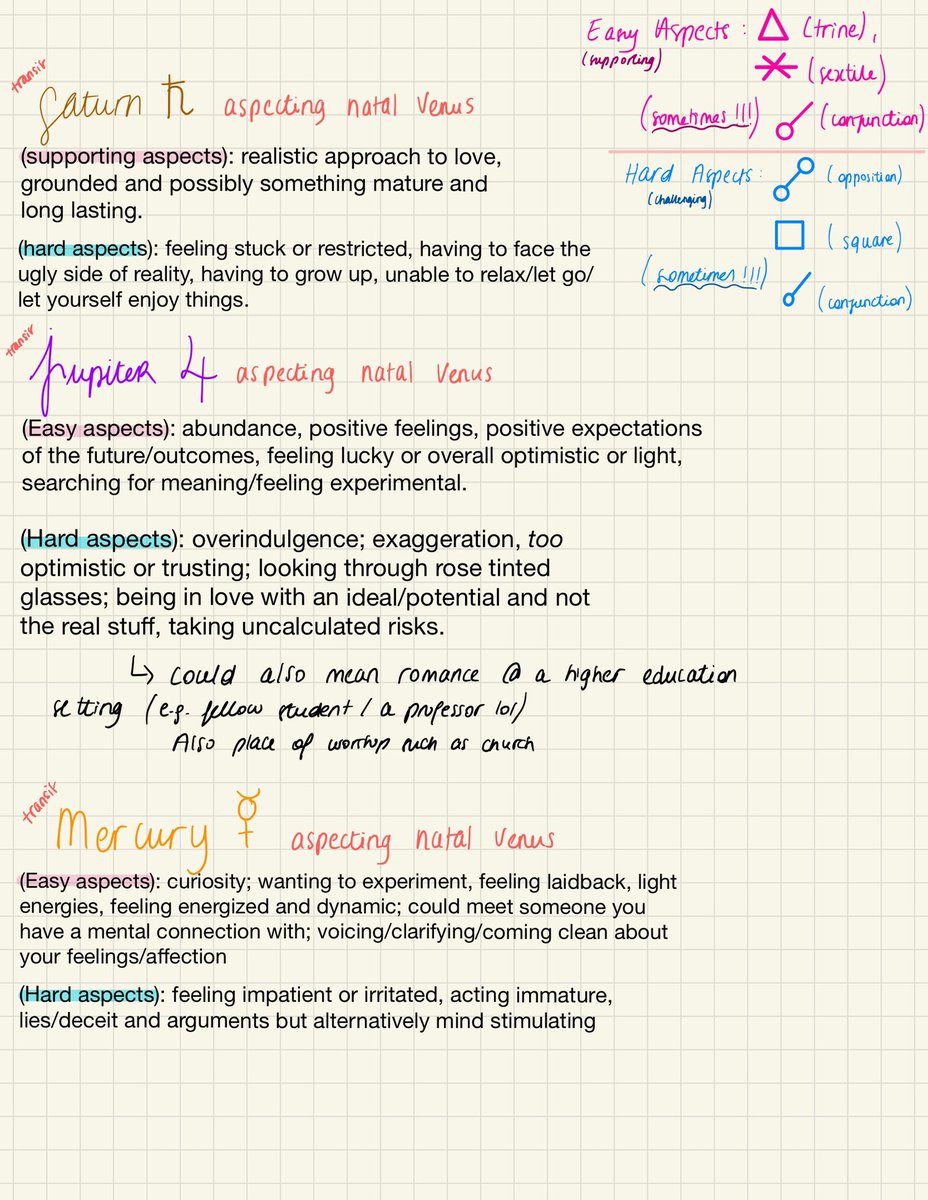 Easy Aspects: △ (trine),
(supporting)
(sextile)
(sometimes !!!) (conjunction)
Hard Aspects: (opposition)
(challenging)
(square)
(sometimes !!!)
(conjunction)
transit
Saturn ♄ aspecting natal Venus
(supporting aspects): realistic approach to love,
grounded and possibly something mature and
long lasting.
(hard aspects): feeling stuck or restricted, having to face the
ugly side of reality, having to grow up, unable to relax/let go/
let yourself enjoy things.
transit
Jupiter ♃ aspecting natal Venus
(Easy aspects): abundance, positive feelings, positive expectations
of the future/outcomes, feeling lucky or overall optimistic or light,
searching for meaning/feeling experimental.
(Hard aspects): overindulgence; exaggeration, too
optimistic or trusting; looking through rose tinted
glasses; being in love with an ideal/potential and not
the real stuff, taking uncalculated risks.
↳ could also mean romance @ a higher education
setting (e.g. fellow student / a professor lol)
Also place of worship such as church
transit
Mercury ☿ aspecting natal Venus
(Easy aspects): curiosity; wanting to experiment, feeling laidback, light
energies, feeling energized and dynamic; could meet someone you
have a mental connection with; voicing/clarifying/coming clean about
your feelings/affection
(Hard aspects): feeling impatient or irritated, acting immature,
lies/deceit and arguments but alternatively mind stimulating